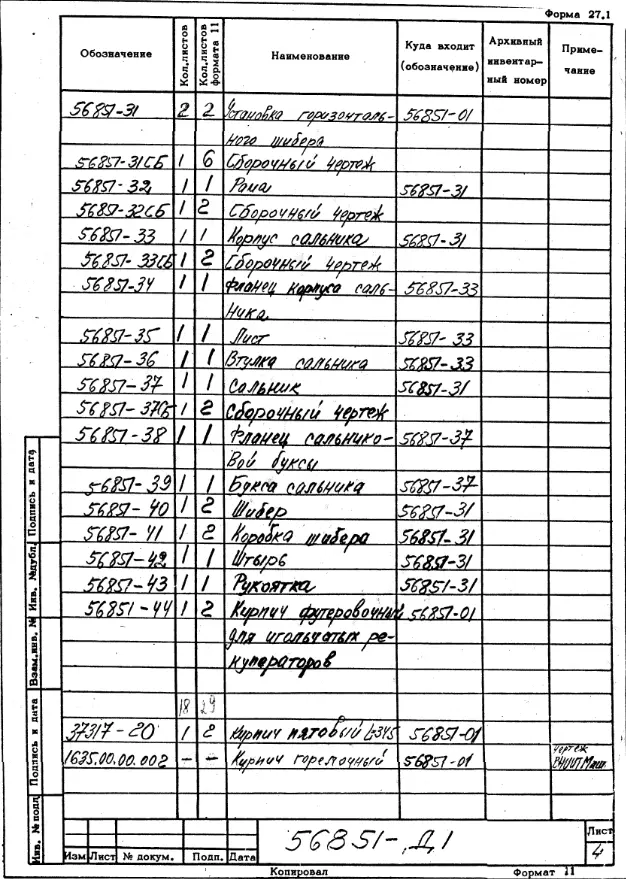 Форма 27.1
Обозначение Кол.листов Кол.листов формата 11 Наименование Куда входит (обозначение) Архивный инвентарный номер Примечание
56851-31 2 2 Установка горизонталь- 56851-01
ного шибера
56851-31СБ 1 6 Сборочный чертеж
56851-32 1 1 Рама 56851-31
56851-32СБ 1 2 Сборочный чертеж
56851-33 1 1 Корпус сальника 56851-31
56851-33СБ 1 2 Сборочный чертеж
56851-34 1 1 Фланец корпуса саль- 56851-33
ника
56851-35 1 1 Лист 56851-33
56851-36 1 1 Втулка сальника 56851-33
56851-37 1 1 Сальник 56851-31
56851-37СБ 1 2 Сборочный чертеж
56851-38 1 1 Фланец сальнико- 56851-37
вой буксы
56851-39 1 1 Букса сальника 56851-37
56851-40 1 2 Шибер 56851-31
56851-41 1 2 Коробка шибера 56851-31
56851-42 1 1 Штырь 56851-31
56851-43 1 1 Рукоятка 56851-31
56851-44 1 2 Кирпич футеровочный 56851-01
для игольчатых ре-
куператоров
18 29
37317-20 1 2 Кирпич пятовый L-345 56851-01
1635.00.00.002 — — Кирпич горелочный 56851-01 чертеж
Подпись и дата
Инв. №дубл.
Взам.инв. №
Подпись и дата
Инв. №подл
56851-Д1
Лист
4
Изм Лист № докум. Подп. Дата
Копировал Формат 11